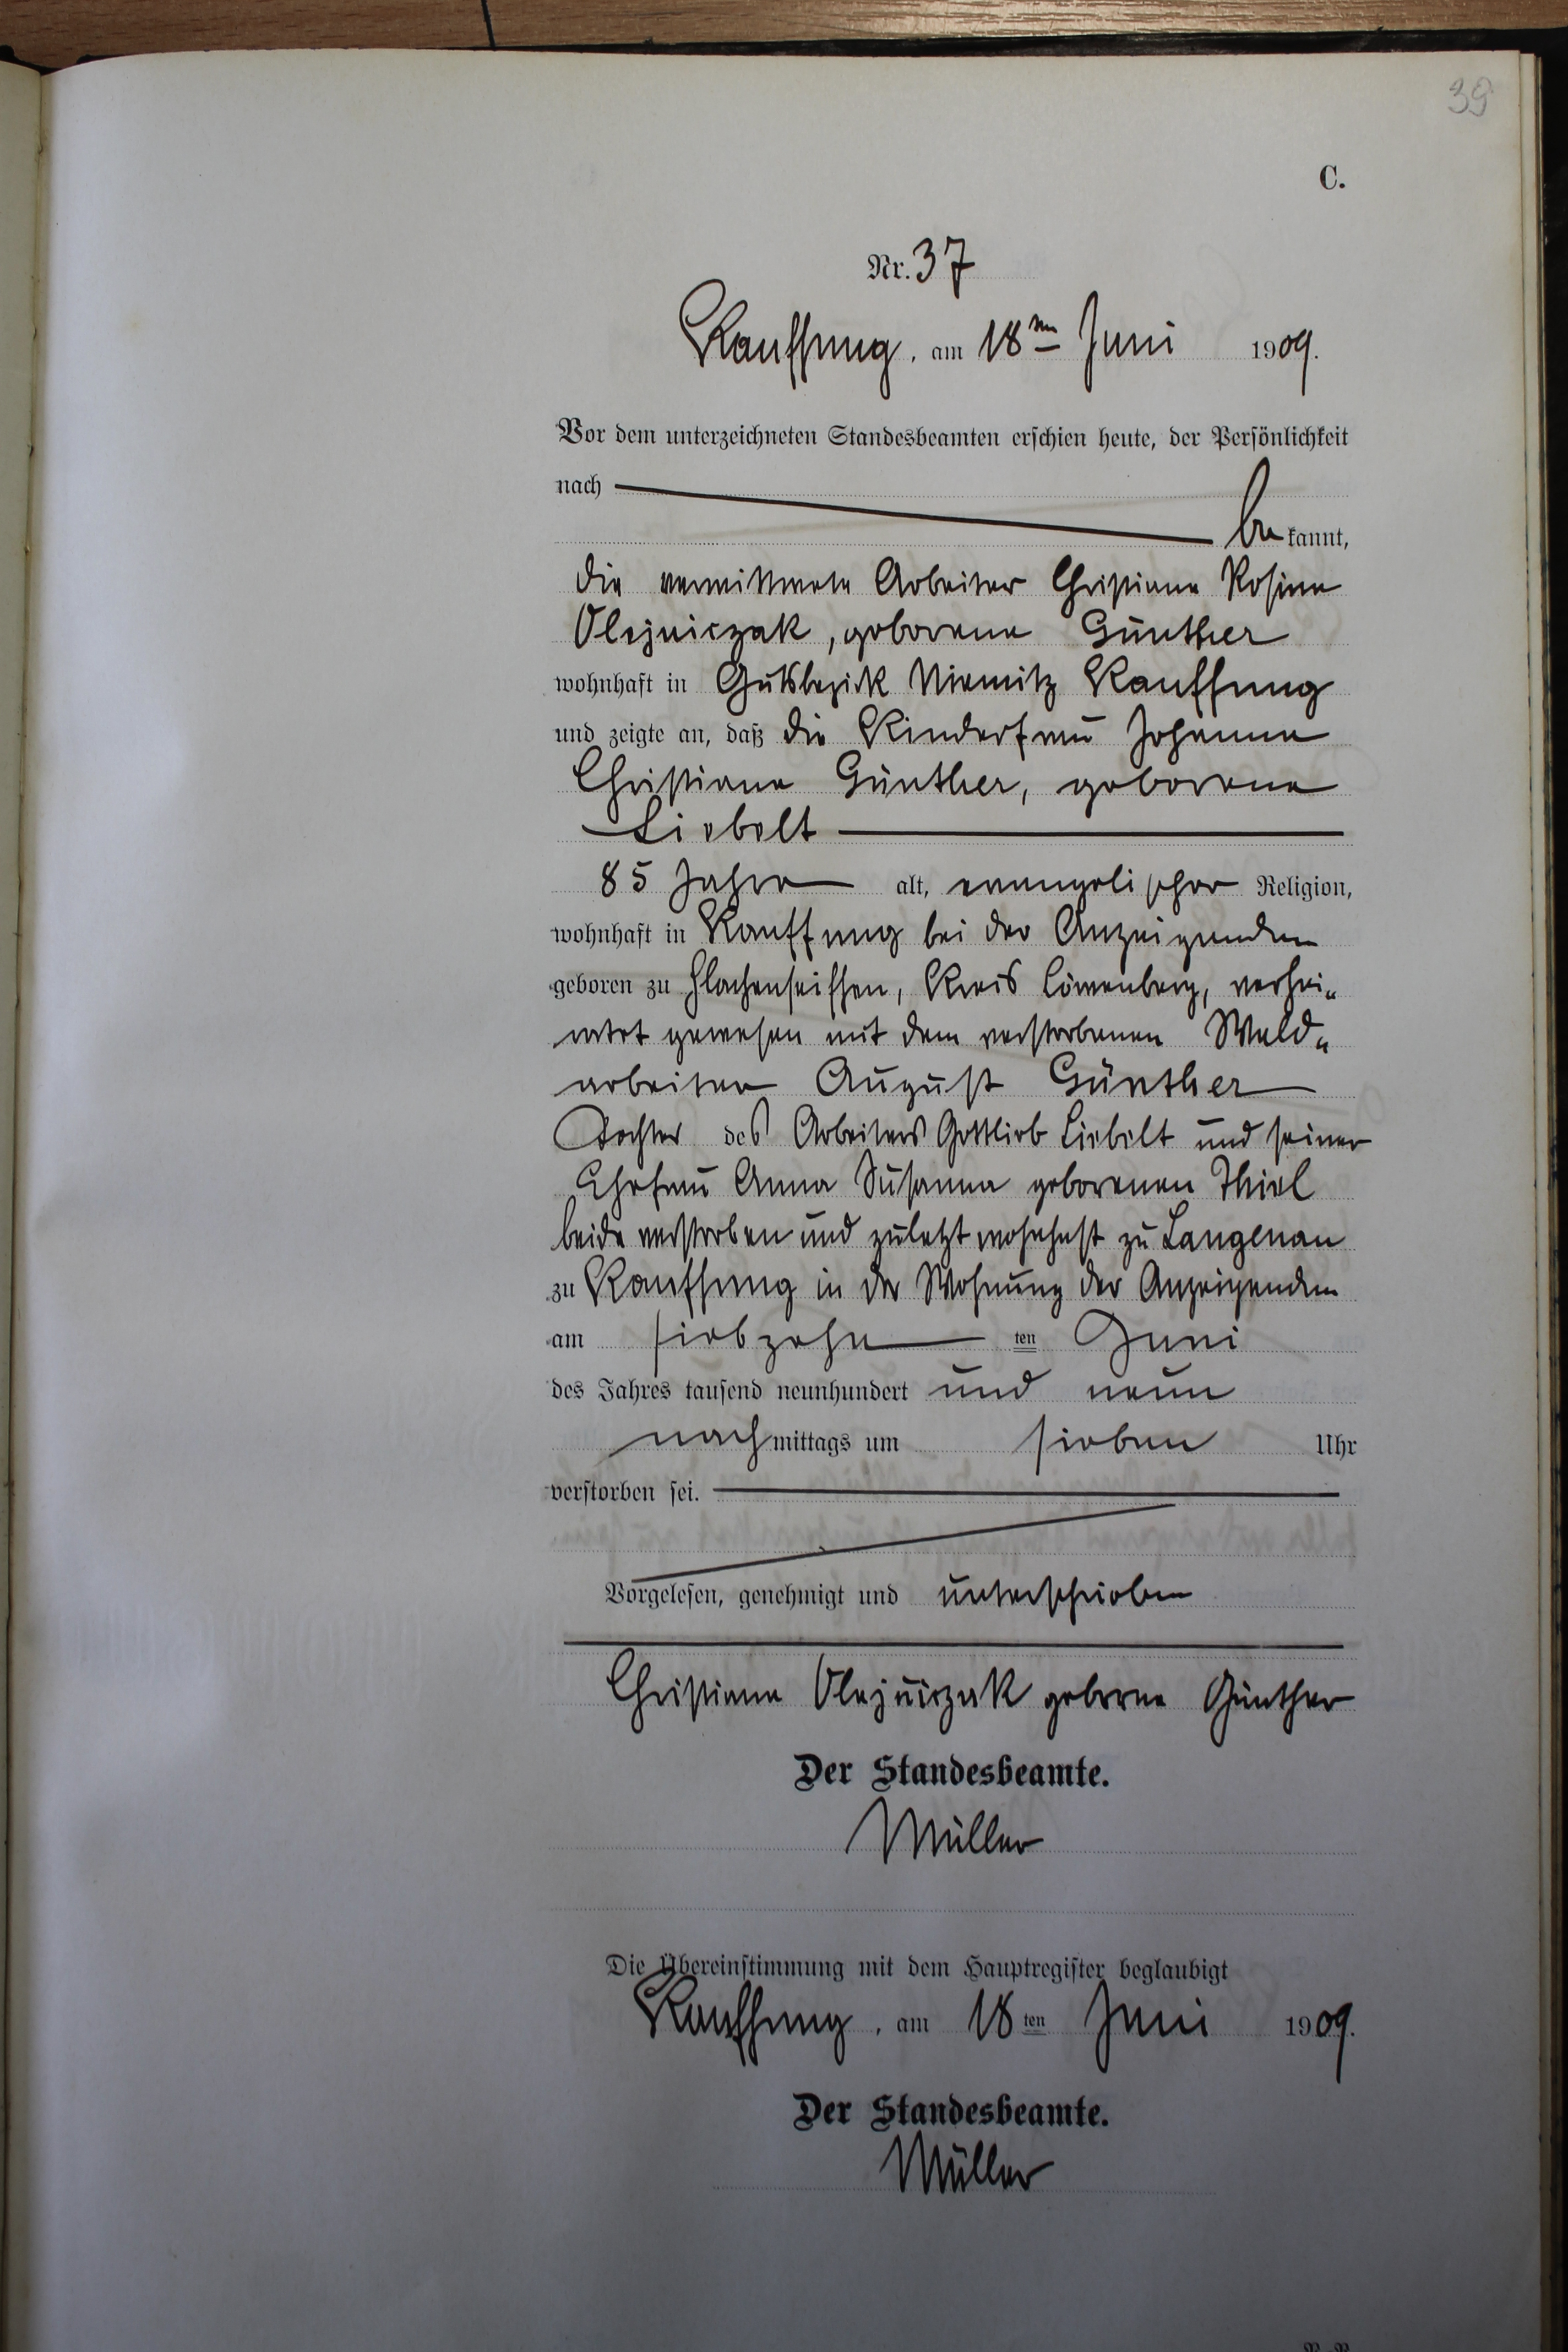 39
C.
Nr. 37
Kauffung, am 18ten Juni 1909.
Vor dem unterzeichneten Standesbeamten erschien heute, der Persönlichkeit
nach
be kannt,
die verwittwete Arbeiter Christiane Rosine
Olejniczak, geborene Günther
wohnhaft in Gutsbezirk Niemitz Kauffung
und zeigte an, daß die Kinderfrau Johanne
Christiane Günther, geborene
Liebelt
85 Jahre alt, evangelischer Religion,
wohnhaft in Kauffung bei der Anzeigenden
geboren zu Flachenseiffen, Kreis Löwenberg, verhei-
ratet gewesen mit dem verstorbenen Wald-
arbeiter August Günther
Tochter des Arbeiters Gottlieb Liebelt und seiner
Ehefrau Anna Susanna geborenen Thiel
beide verstorben und zuletzt wohnhaft zu Langenau
zu Kauffung in der Wohnung der Anzeigenden
am siebzehn ten Juni
des Jahres tausend neunhundert und neun
nachmittags um sieben Uhr
verstorben sei.
Vorgelesen, genehmigt und unterschrieben
Christiane Olejniczak geborne Günther
Der Standesbeamte.
Müller
Die Übereinstimmung mit dem Hauptregister beglaubigt
Kauffung, am 18ten Juni 1909.
Der Standesbeamte.
Müller